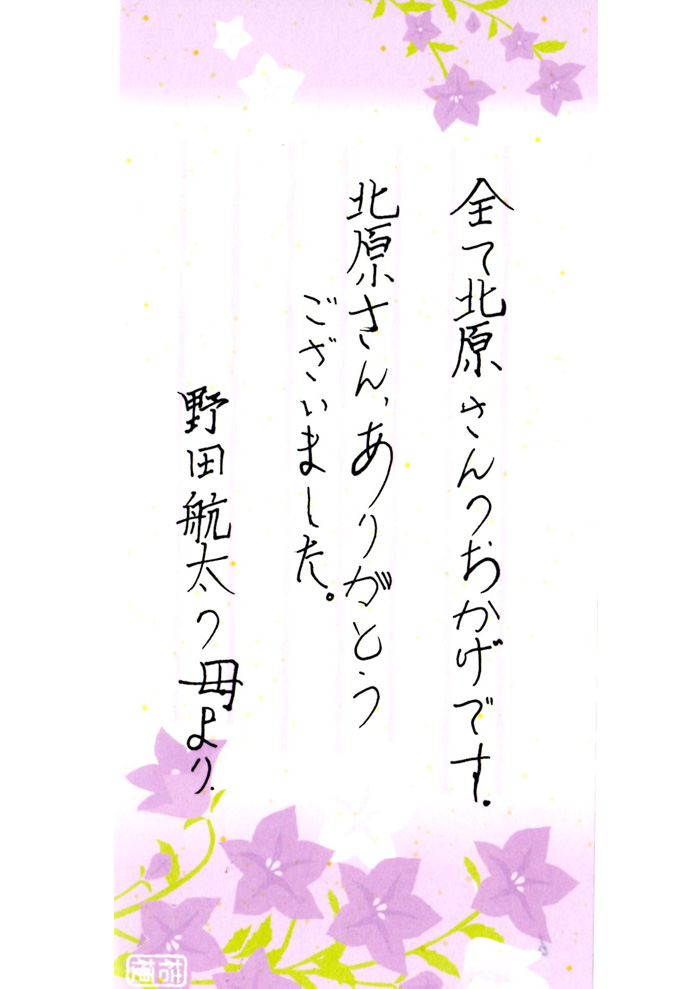 全て北原さんのおかげです。
北原さん、ありがとう
ございました。
野田航太の母より